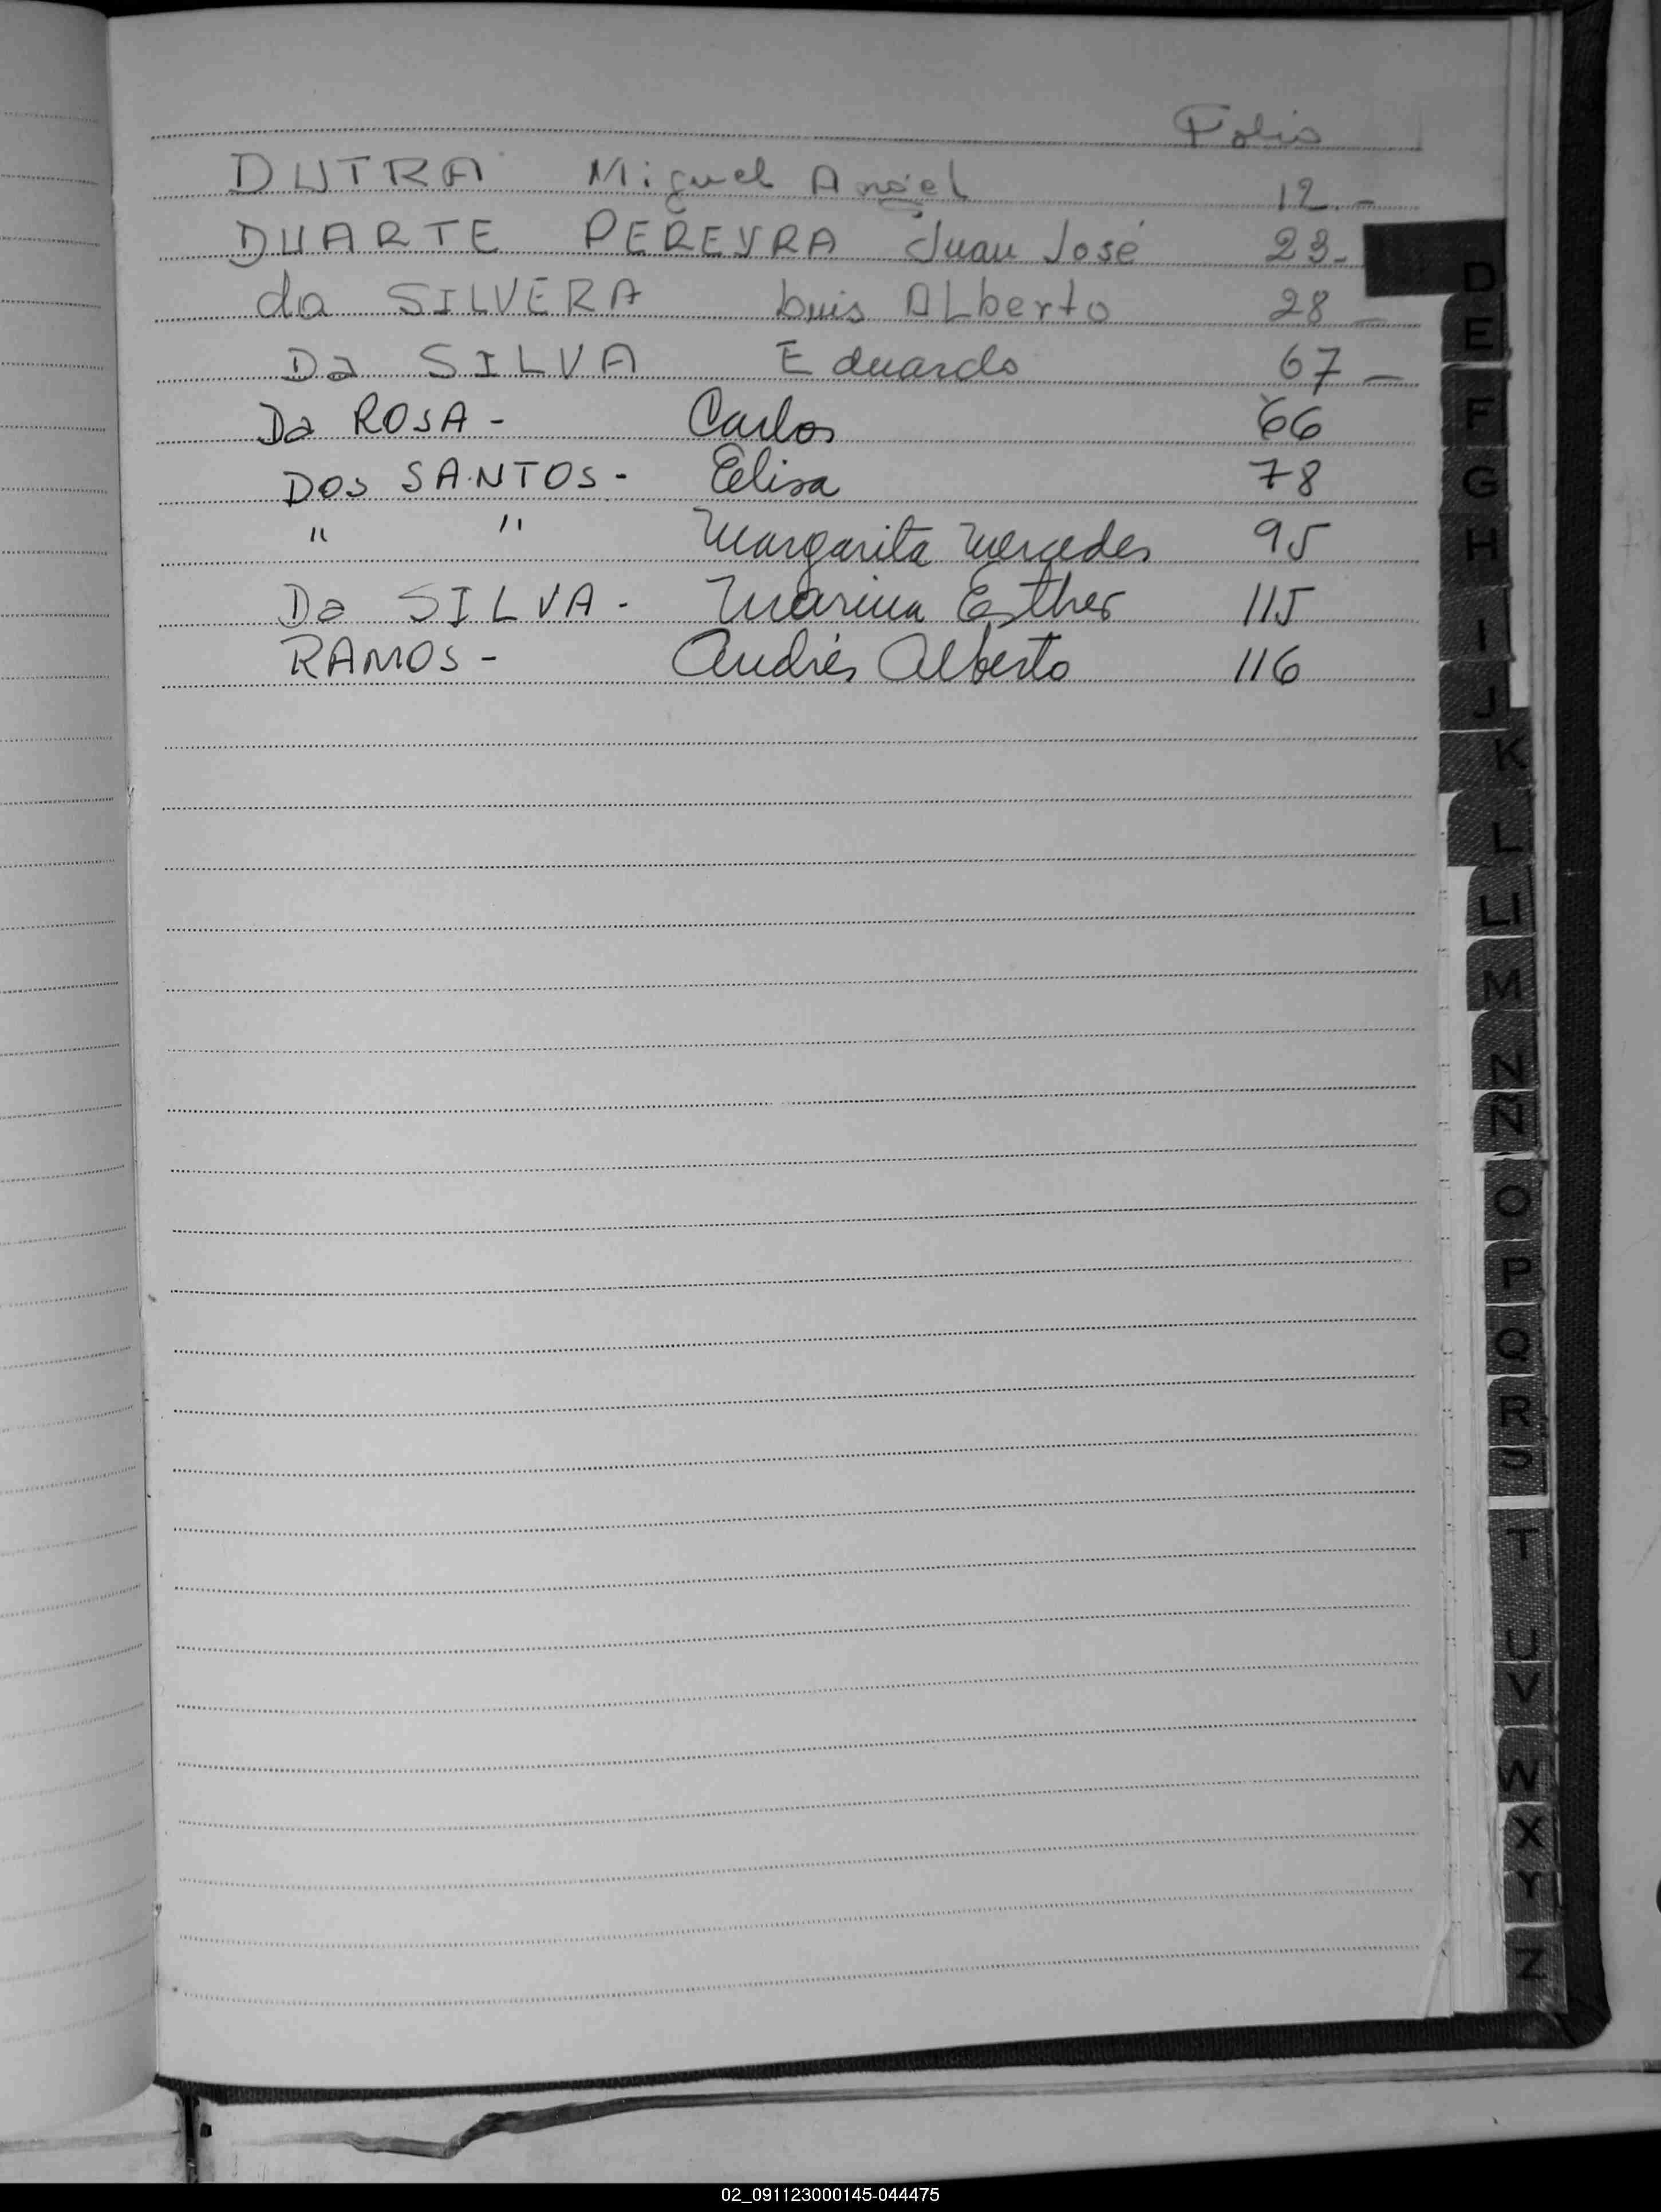 Folio
DUTRA Miguel Angel 12.-
DUARTE PEREYRA Juan José 23-
da SILVERA Luis ALberto 28 -
Da SILVA Eduardo 67 -
Da ROSA - Carlos 66
DOS SANTOS - Elisa 78
" " Margarita Mercedes 95
Da SILVA - Marina Esther 115
RAMOS - Andrés Alberto 116
D
E
F
G
H
I
J
K
L
Ll
M
N
Ñ
O
P
Q
R
S
T
U
V
W
X
Y
Z
02_091123000145-044475